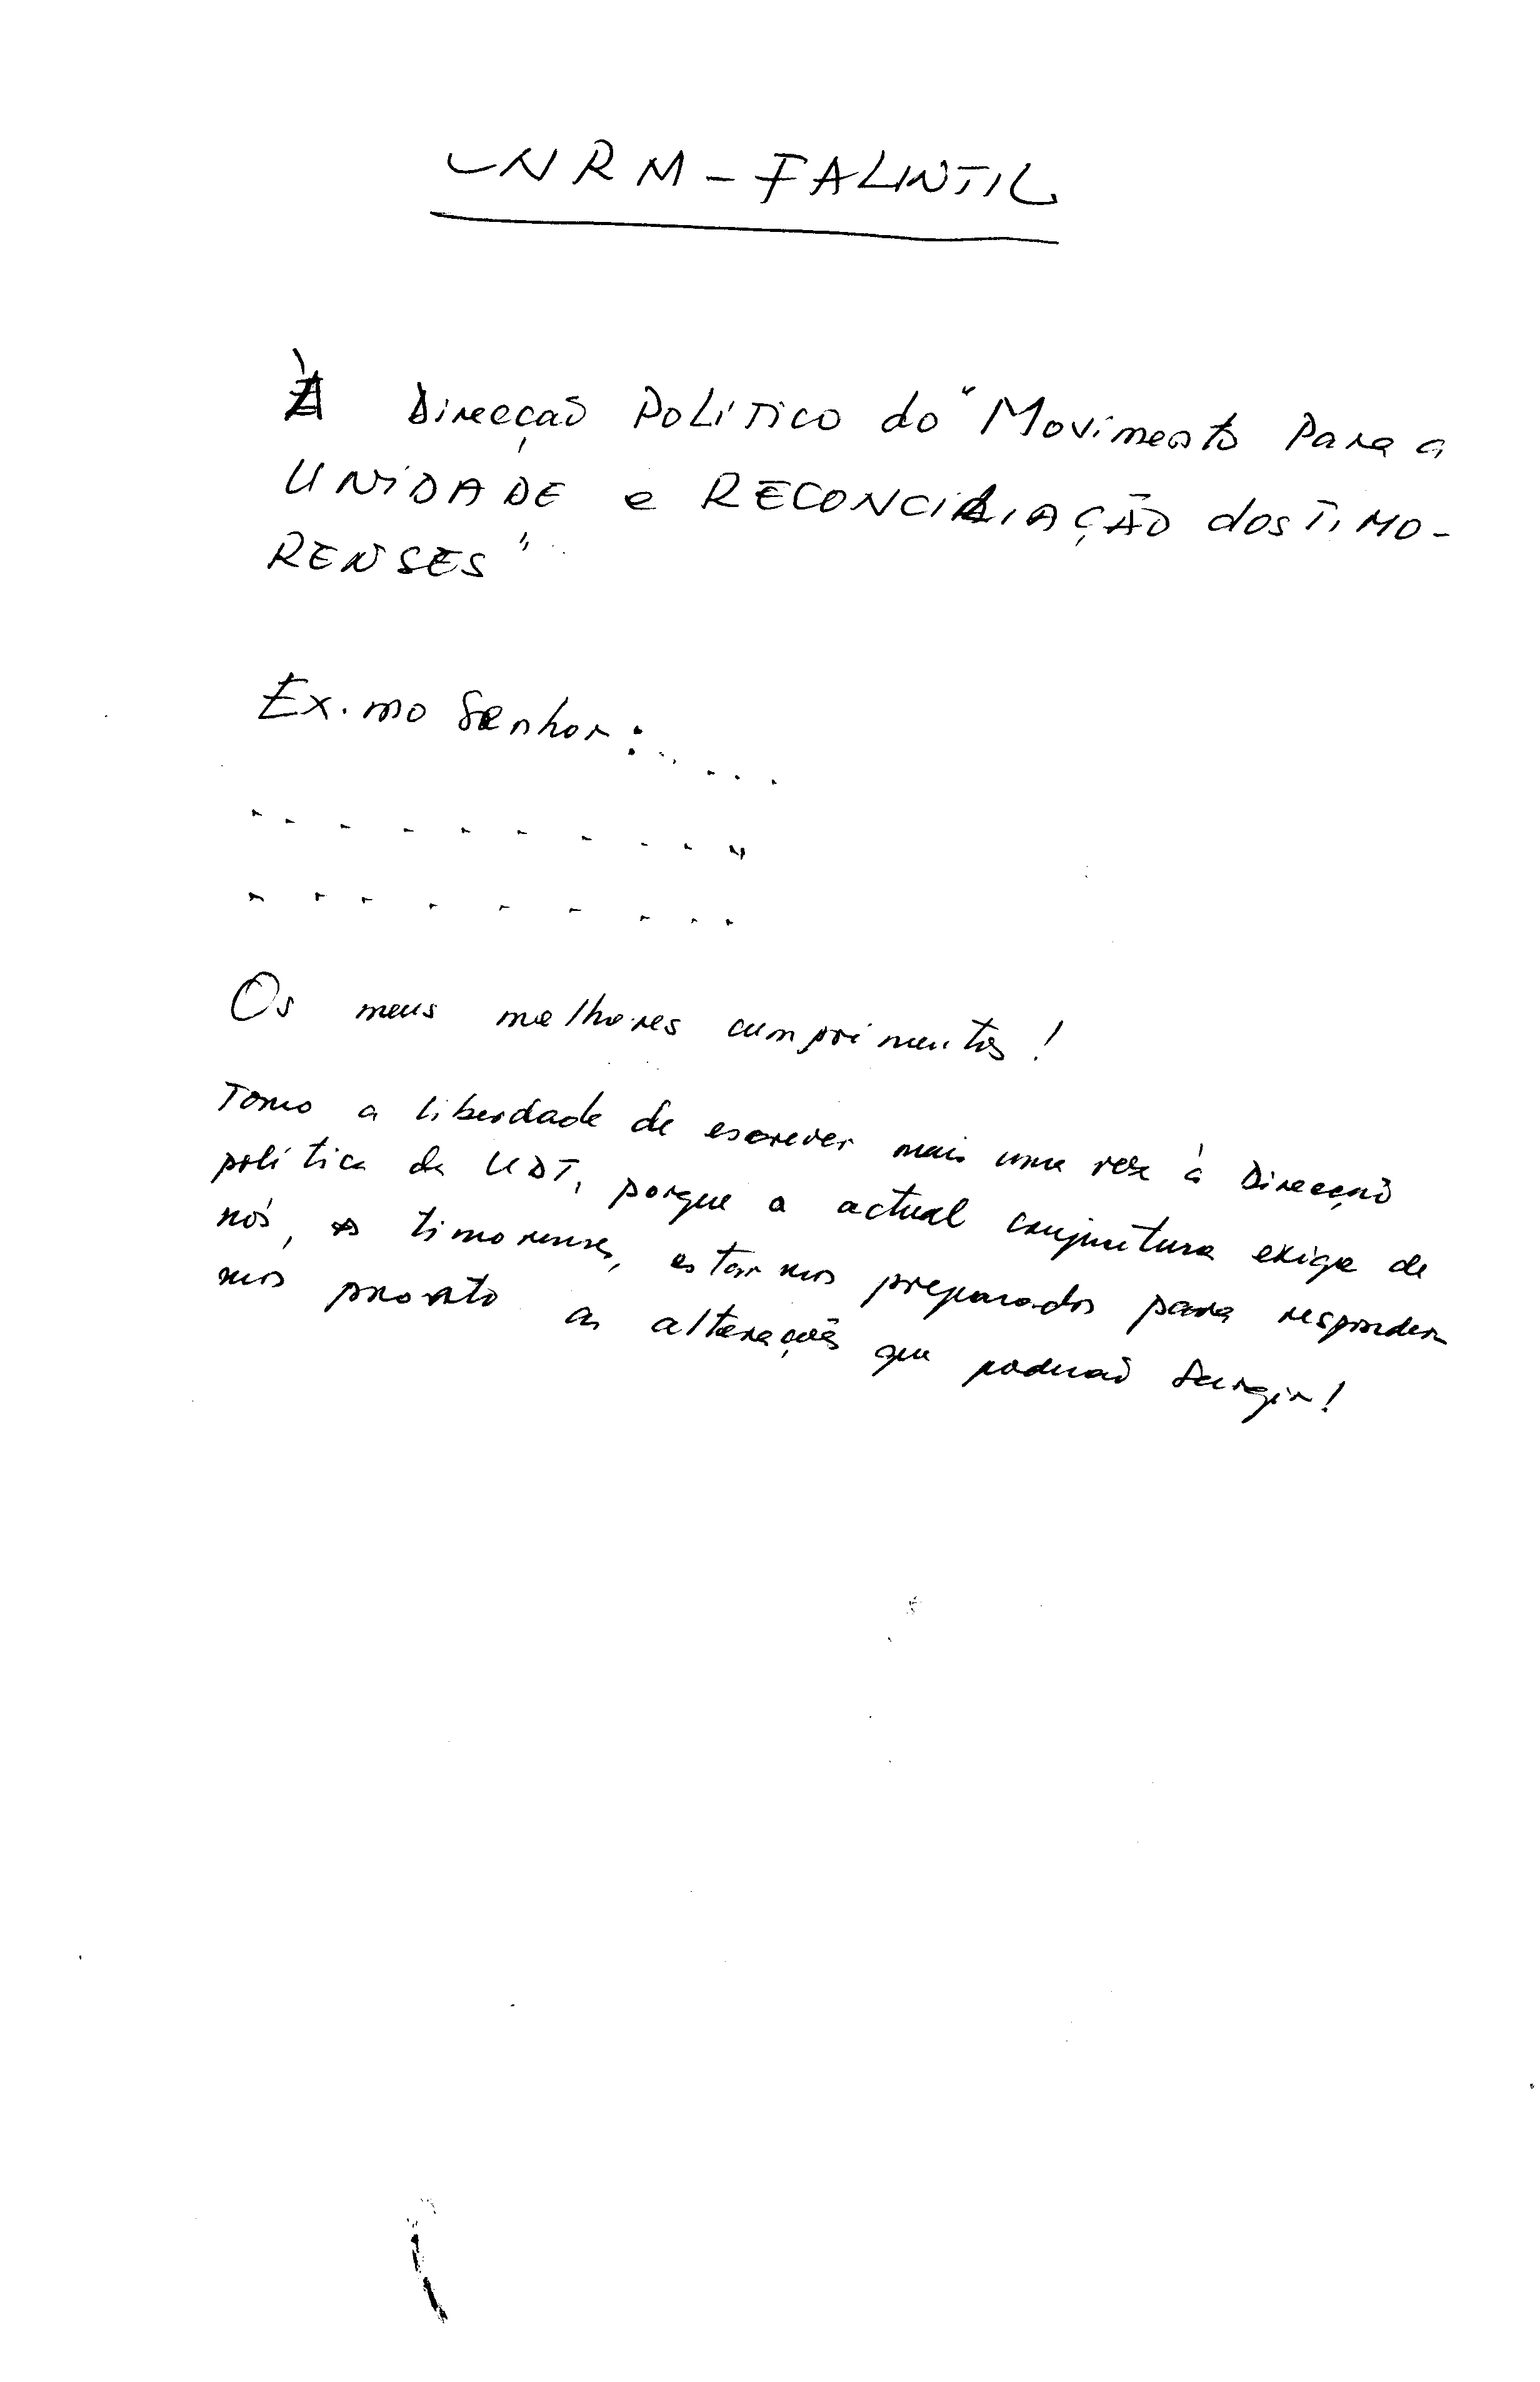 CNRM - FALINTIL
À Direcção Politico do "Movimento Para a
UNIDADE e RECONCILIAÇÃO dos TIMO-
RENSES"
Ex.mo Senhor: . . . .
. . . . . . . . . .
. . . . . . . . .
Os meus melhores cumprimentos!
Tomo a liberdade de escrever mais uma vez à Direcção
política da UDT, porque a actual conjuntura exige de
nós, os timorenses, estarmos preparados para responder
mos pronto as alterações que poderaõ surgir!